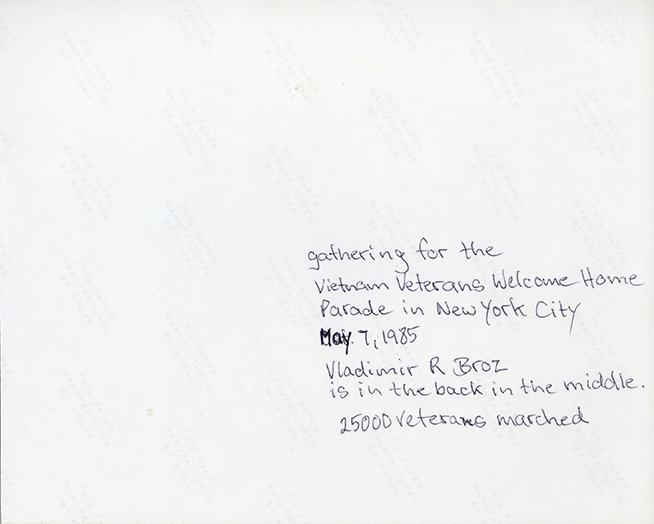 gathering for the
Vietnam Veterans Welcome Home
Parade in New York City
May 7, 1985
Vladimir R Broz
is in the back in the middle.
25000 veterans marched
THIS PAPER
MANUFACTURED
BY KODAK